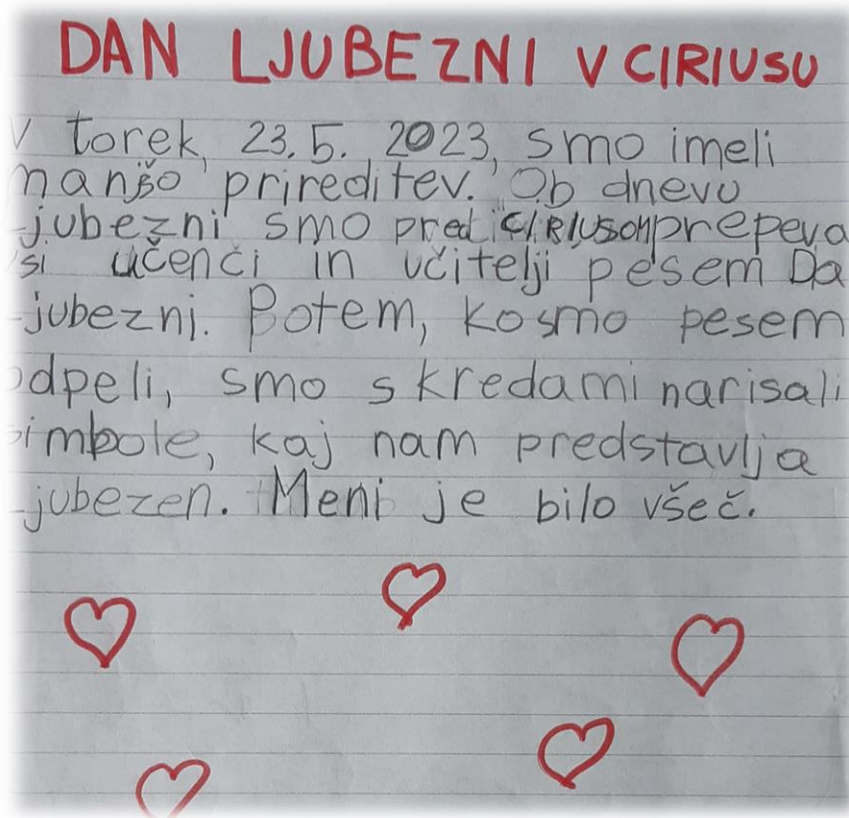 DAN LJUBEZNI V CIRIUSU
V torek, 23.5. 2023, smo imeli
manjšo prireditev. Ob dnevu
ljubezni smo pred CIRIUSOM prepeva
si učenci in učitelji pesem Da
ljubezni. Potem, ko smo pesem
odpeli, smo s kredami narisali
simbole, kaj nam predstavlja
ljubezen. Meni je bilo všeč.